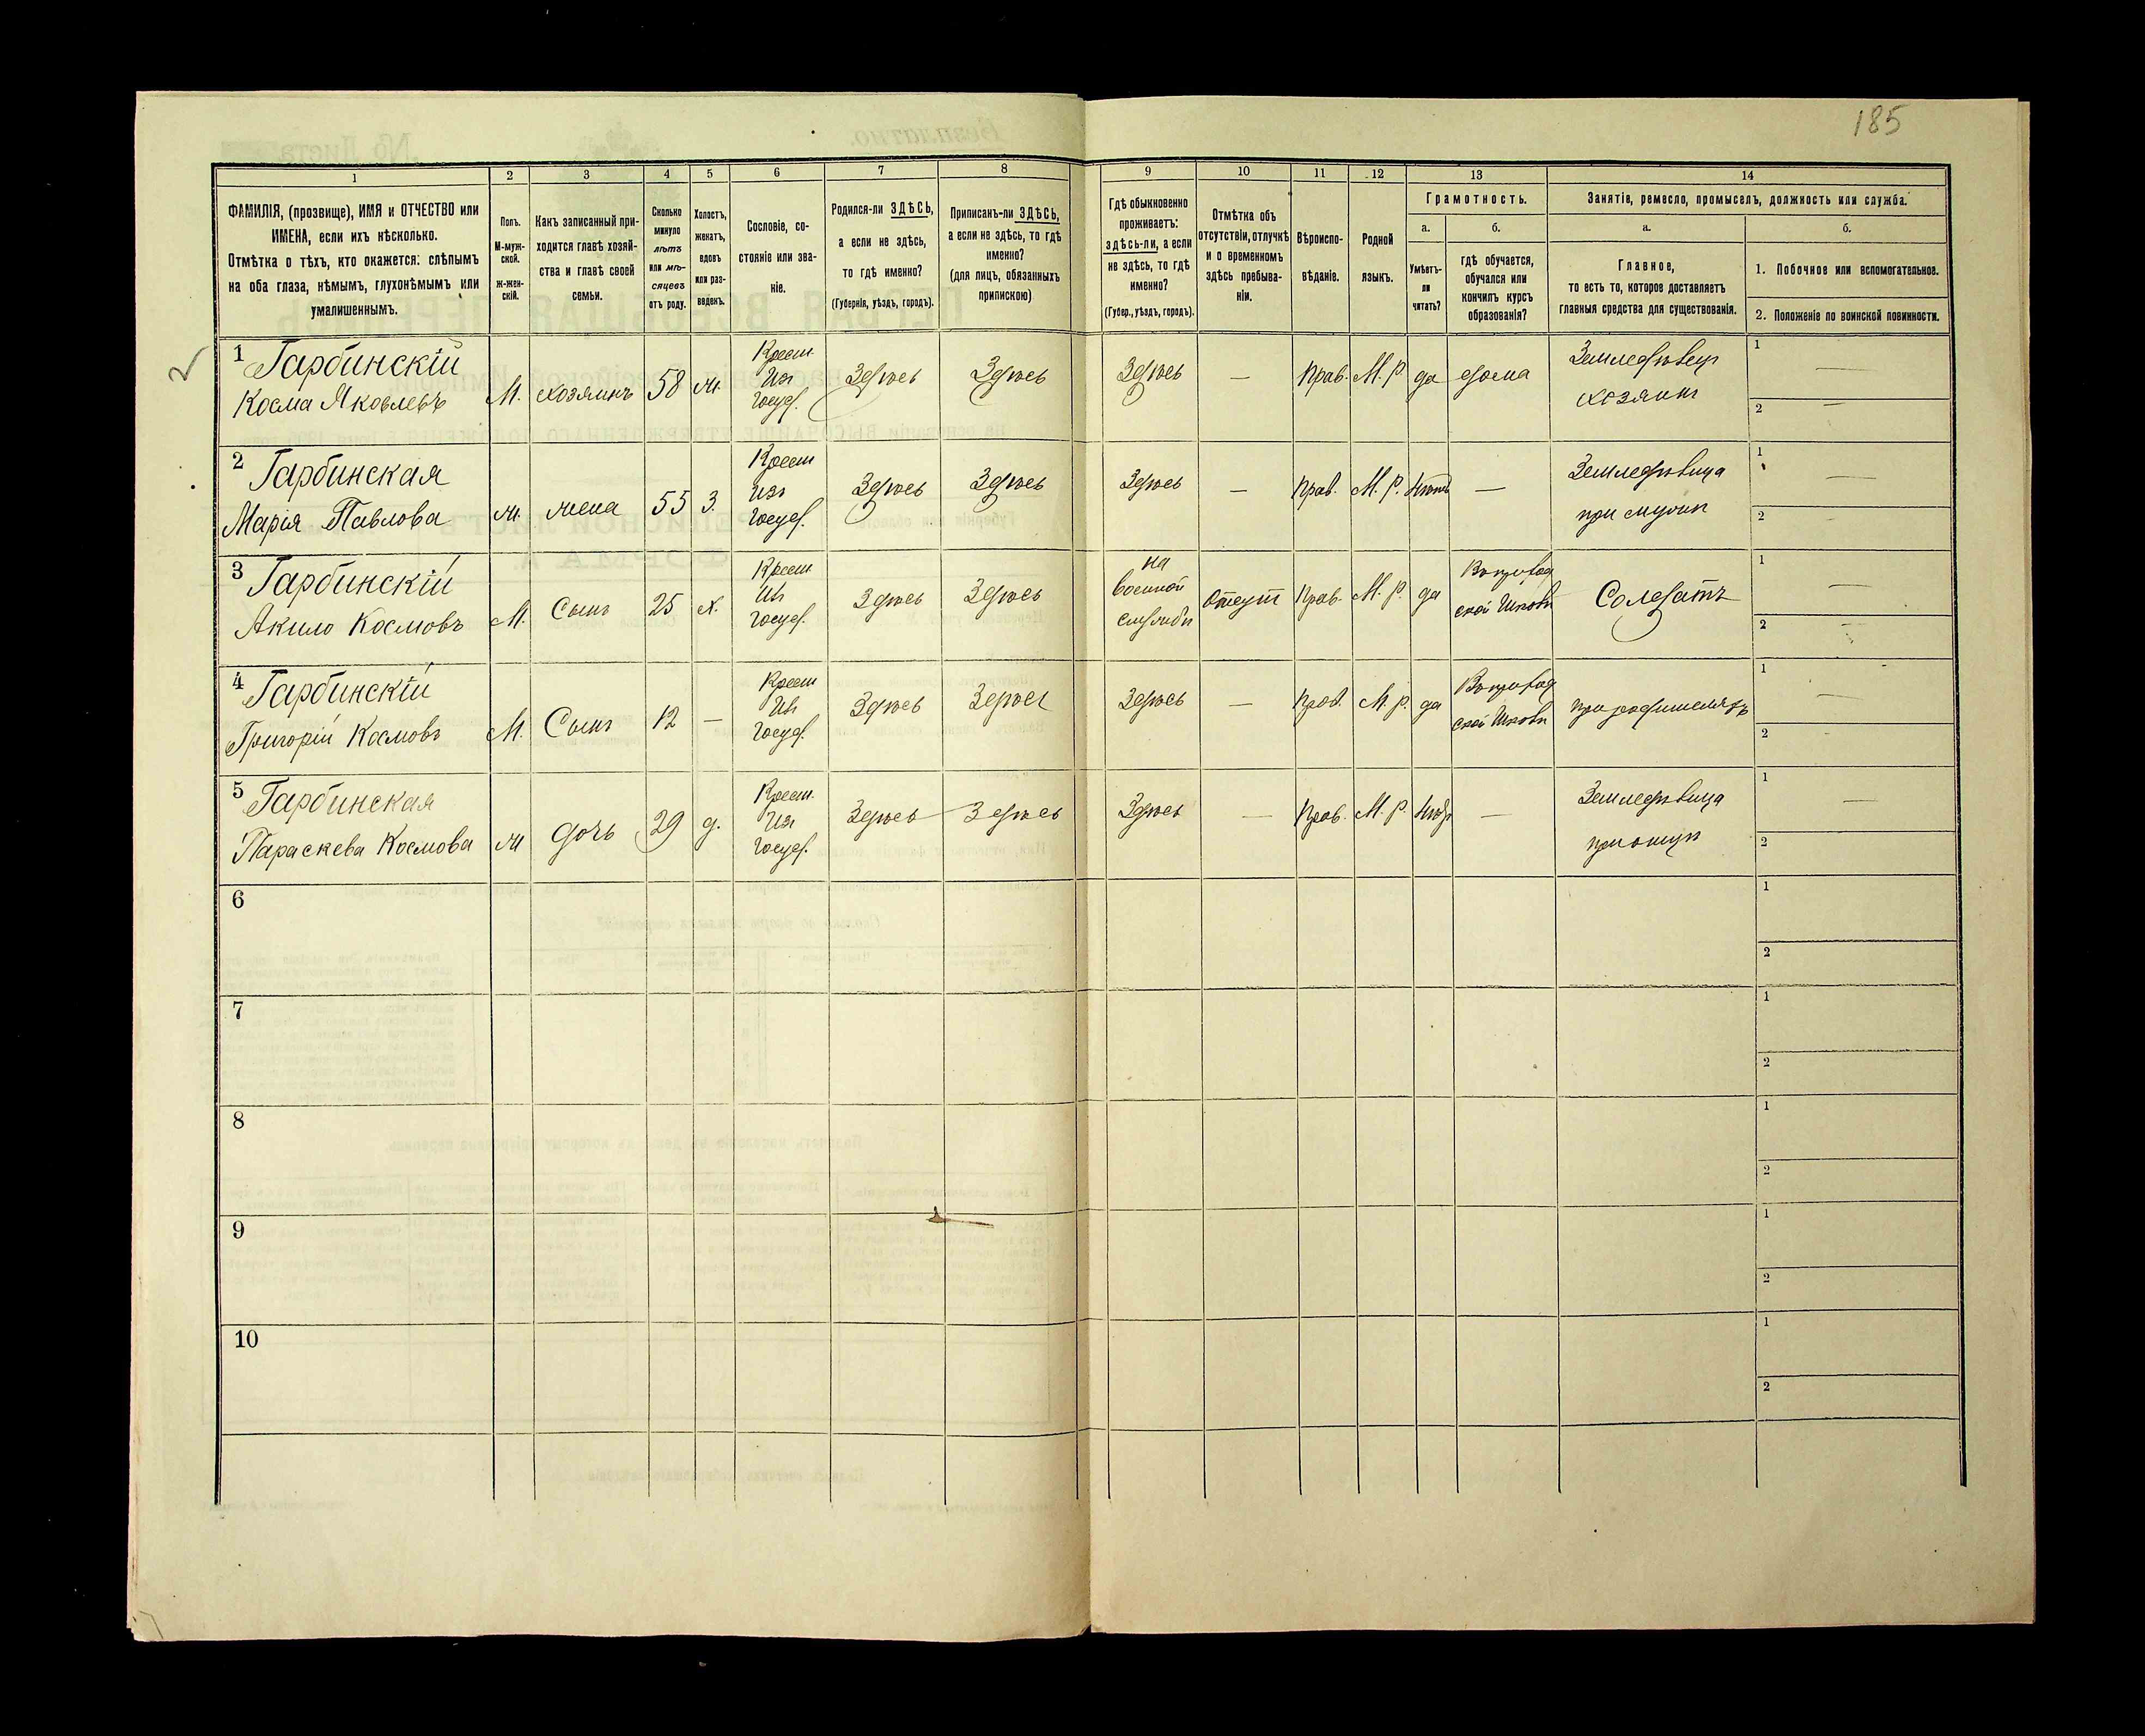 185
1
2
3
4
5
6
7
8
9
10
11
12
13
14
ФАМИЛІЯ, (прозвище), ИМЯ и ОТЧЕСТВО или
ИМЕНА, если ихъ нѣсколько.
Отмѣтка о тѣхъ, кто окажется: слѣпымъ
на оба глаза, нѣмымъ, глухонѣмымъ или
умалишеннымъ.
Полъ.
М-муж-
ской.
Ж-жен-
скій.
Какъ записанный при-
ходится главѣ хозяй-
ства и главѣ своей
семьи.
Сколько
минуло
лѣтъ
или мѣ-
сяцевъ
отъ роду.
Холостъ,
женатъ,
вдовъ
или раз-
веденъ.
Сословіе, со-
стояніе или зва-
ніе.
Родился-ли ЗДѢСЬ,
а если не здѣсь,
то гдѣ именно?
(Губернія, уѣздъ, городъ).
Приписанъ-ли ЗДѢСЬ,
а если не здѣсь, то гдѣ
именно?
(для лицъ, обязанныхъ
припискою)
Гдѣ обыкновенно
проживаетъ:
здѣсь-ли, а если
не здѣсь, то гдѣ
именно?
(Губер., уѣздъ, городъ).
Отмѣтка объ
отсутствіи, отлучкѣ
и о временномъ
здѣсь пребыва-
ніи.
Вѣроиспо-
вѣданіе.
Родной
языкъ.
Грамотность.
а.
Умѣетъ-
ли
читать?
б.
гдѣ обучается,
обучался или
кончилъ курсъ
образованія?
Занятіе, ремесло, промыселъ, должность или служба.
а.
Главное,
то есть то, которое доставляетъ
главныя средства для существованія.
б.
1. Побочное или вспомогательное.
2. Положеніе по воинской повинности.
1 Гарбинскій
Косма Яковлевъ
М.
хозяинъ
58
ж.
Крест.
Изъ
Госуд.
Здѣсь
Здѣсь
Здѣсь
—
Прав.
М. р.
да
дома
Земледѣлец
хозяинъ
1 —
2 —
2 Гарбинская
Марія Павлова
ж.
жена
55
З.
Крест
Изъ
Госуд.
Здѣсь
Здѣсь
Здѣсь
—
Прав.
М. р.
Нѣтъ
—
Земледѣлица
при мужѣ
1 —
2 —
3 Гарбинскій
Акило Космовъ
М.
Сынъ
25
х.
Крест
Изъ
Госуд.
Здѣсь
Здѣсь
на
военной
службѣ
Отсут
Прав.
М. р.
да
ской Школѣ
Солдатъ
1 —
2 —
4 Гарбинскій
Григорій Космовъ
М.
Сынъ
12
—
Крест
Изъ
Госуд.
Здѣсь
Здѣсь
Здѣсь
—
Прав.
М. р.
да
ской Школѣ
при родителяхъ
1 —
2
5 Гарбинская
Параскева Космова
ж
дочь
29
д.
Крест.
Изъ
Госуд.
Здѣсь
Здѣсь
Здѣсь
—
Прав.
М. р.
Нѣтъ
—
Земледѣлица
при отцѣ
1 —
2
6
1
2
7
1
2
8
1
2
9
1
2
10
1
2